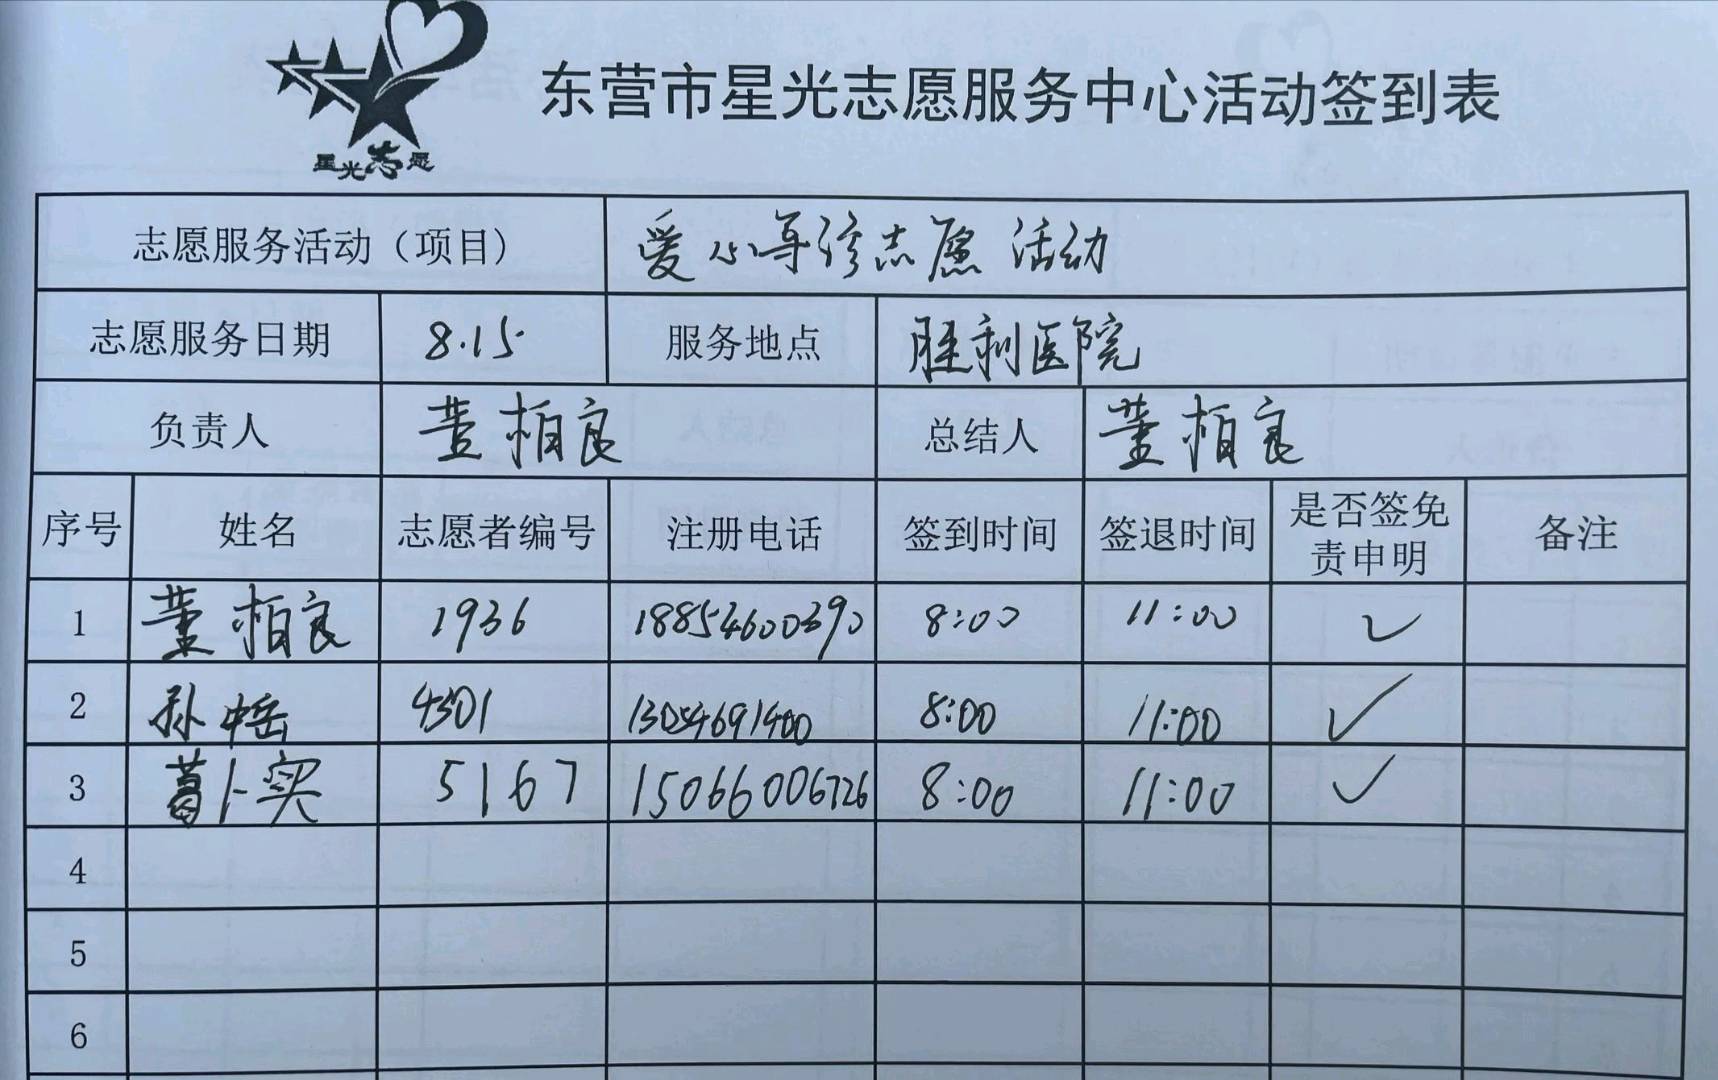 星光志愿
东营市星光志愿服务中心活动签到表
志愿服务活动（项目） 爱心导诊志愿活动
志愿服务日期 8.15 服务地点 胜利医院
负责人 董柏良 总结人 董柏良
序号 姓名 志愿者编号 注册电话 签到时间 签退时间 是否签免责申明 备注
1 董柏良 1936 18854600390 8:00 11:00 ✓
2 孙 4301 13054691400 8:00 11:00 ✓
3 葛 实 5167 15066006726 8:00 11:00 ✓
4
5
6